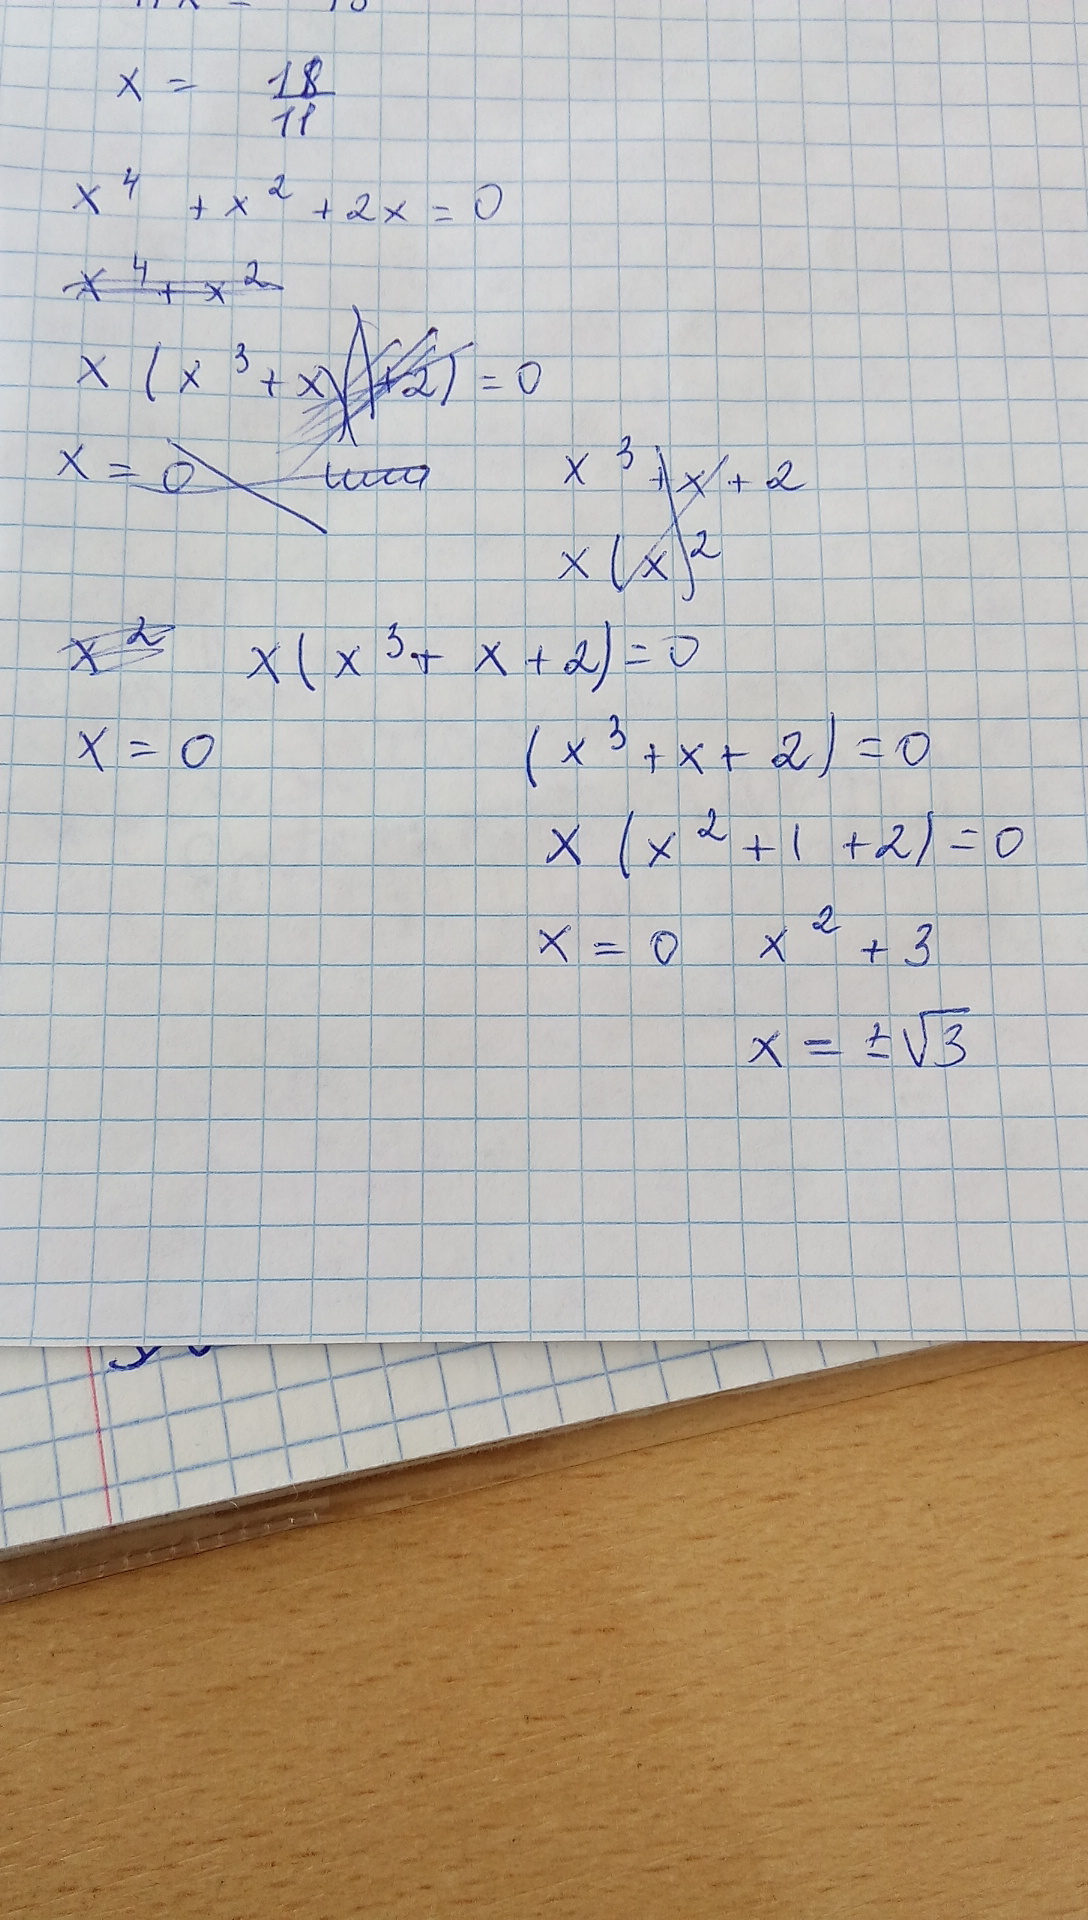 x = 18/11
x⁴ + x² + 2x = 0
x⁴ + x²
x (x³ + x + 2) = 0
x = 0 или
x³ + x + 2
x (x)²
x² x(x³ + x + 2) = 0
x = 0 (x³ + x + 2) = 0
x (x² + 1 + 2) = 0
x = 0 x² + 3
x = ±√3